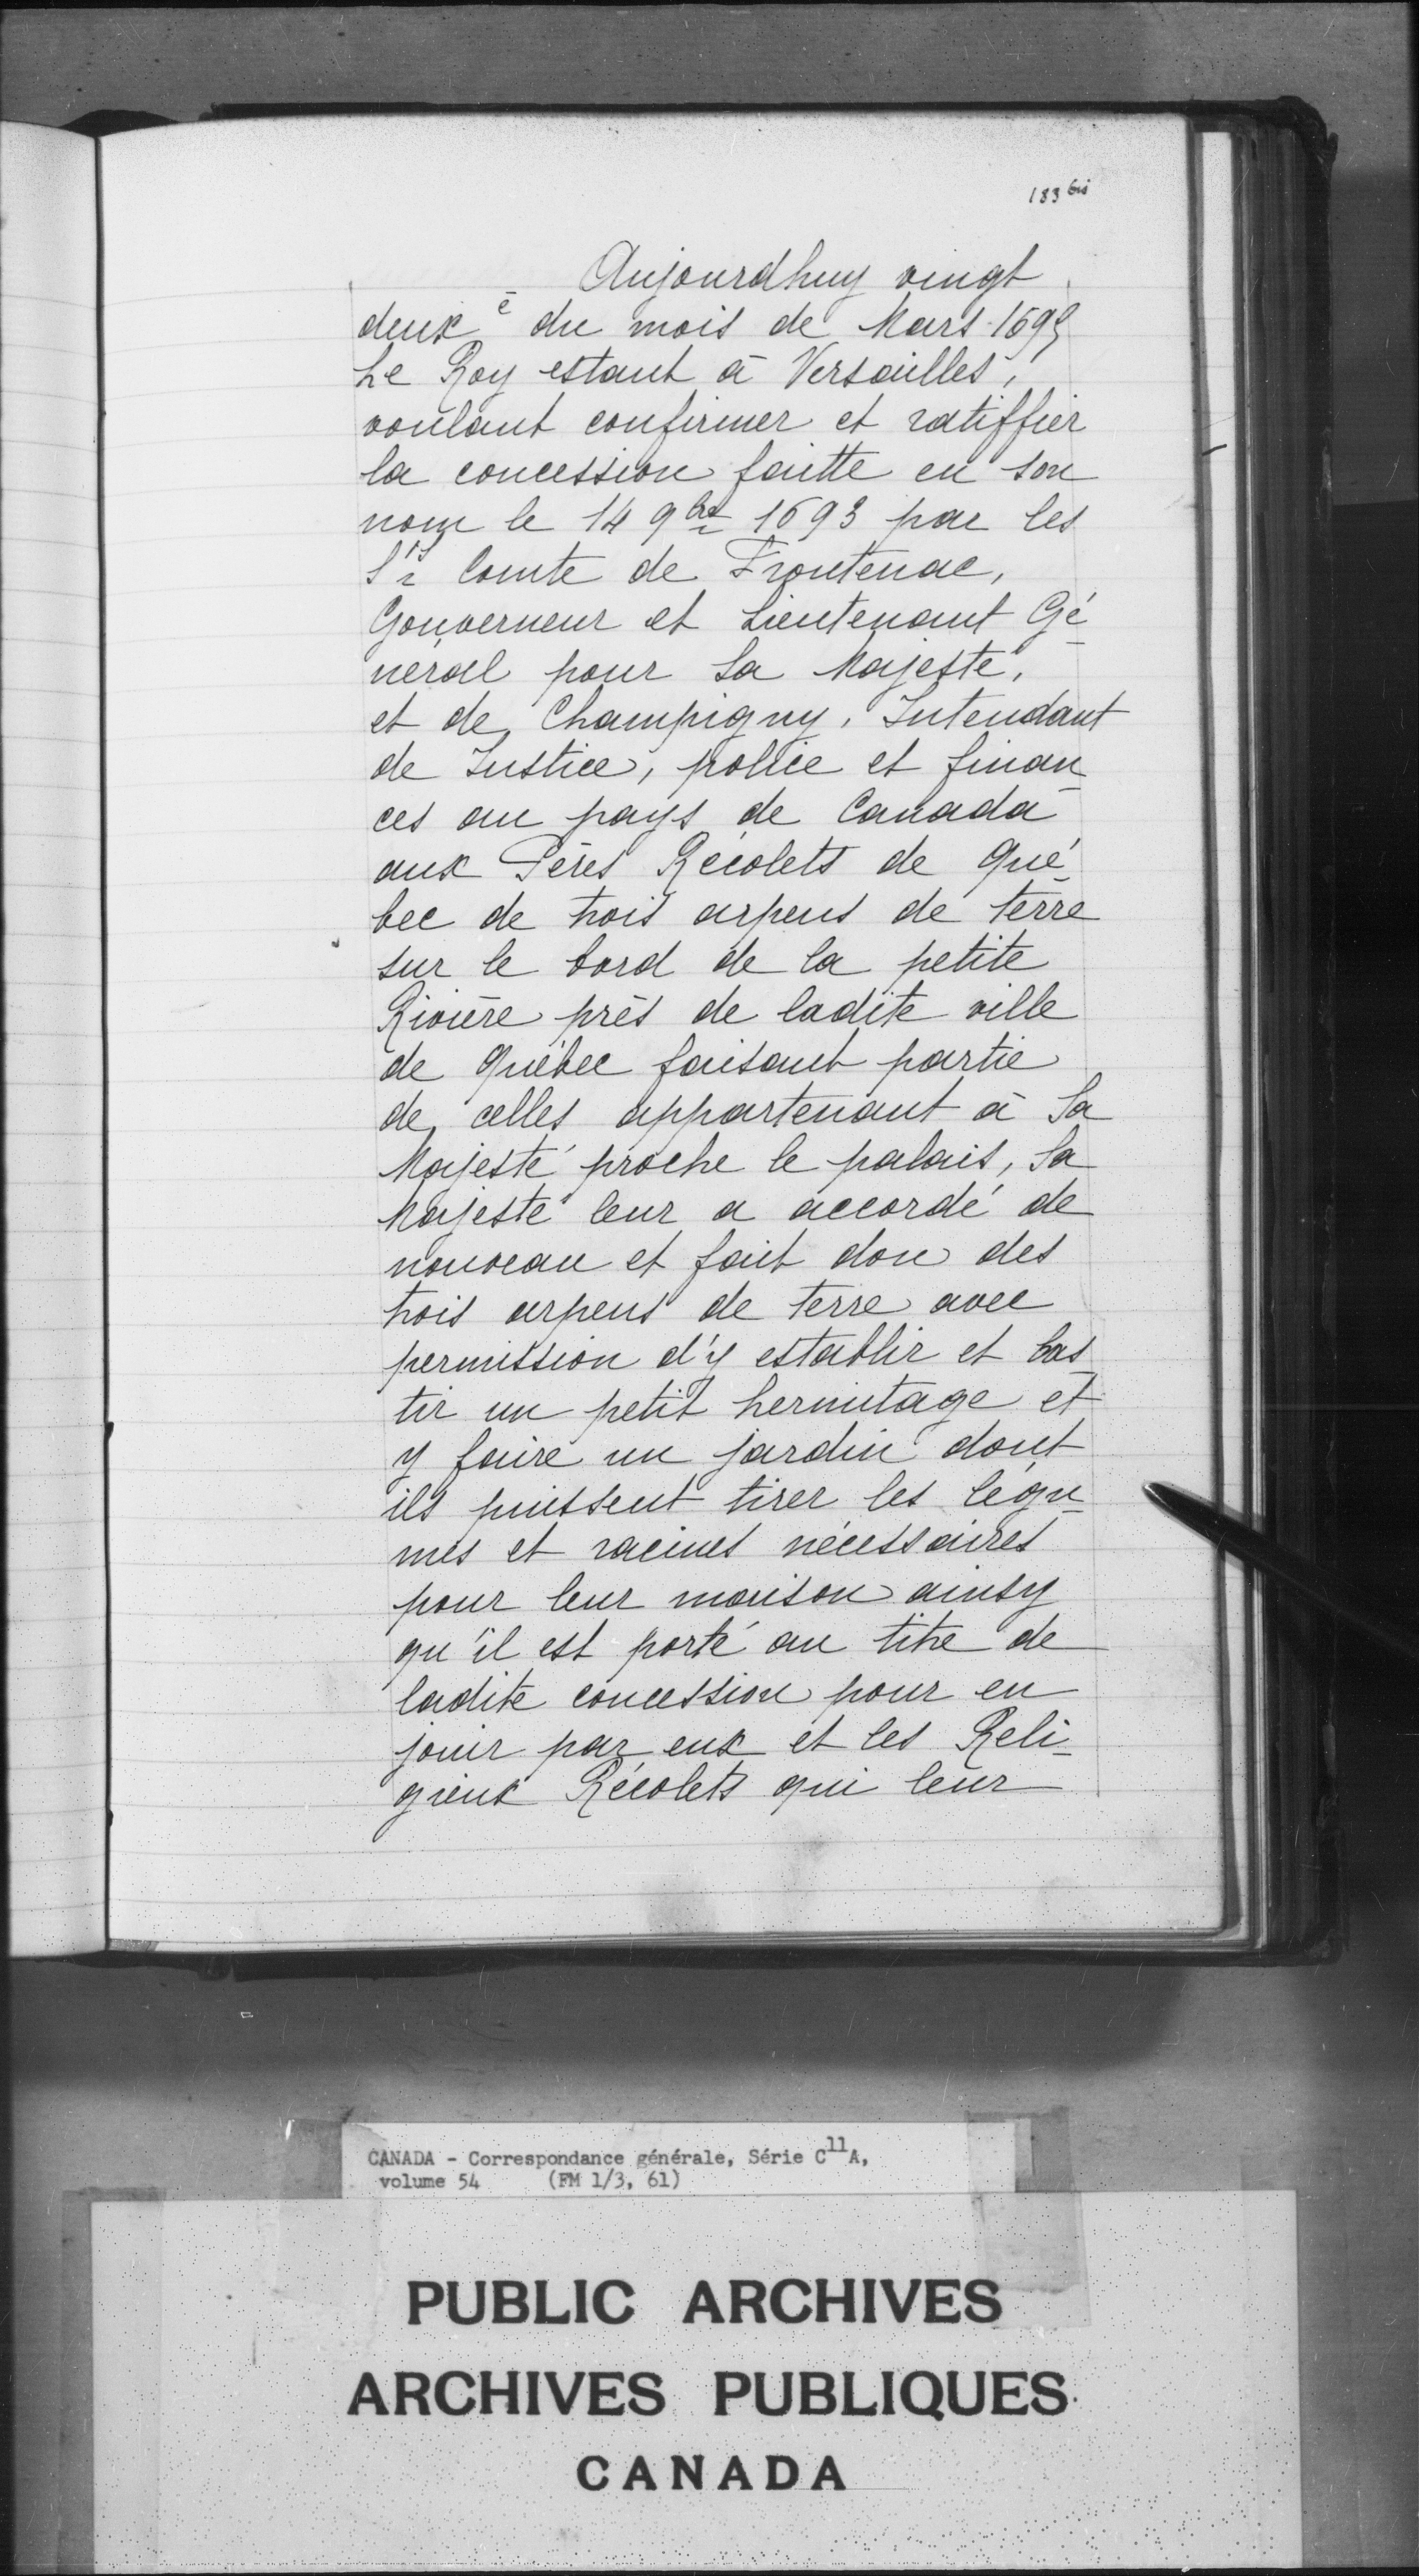 183 bis
Aujourdhuy vingt
deux e du mois de Mars 1695
Le Roy estant à Versailles,
voulant confirmer et ratiffier
la concession faitte en son
nom le 14 9bre 1693 par les
Srs Comte de Frontenac,
Gouverneur et Lieutenant Gé-
néral pour Sa Majesté,
et de Champigny, Intendant
de Justice, police et finan-
ces au pays de Canada
aux Pères Récolets de Qué-
bec de trois arpens de terre
sur le bord de la petite
Rivière près de ladite ville
de Québec faisant partie
de celles appartenant à Sa
Majesté proche le palais, Sa
Majesté leur a accordé de
nouveau et fait don des
trois arpens de terre avec
permission d'y establir et bas-
tir un petit hermitage et
y faire un jardin dont
ils puissent tirer les légu-
mes et racines nécessaires
pour leur maison ainsy
qu'il est porté au titre de
ladite concession pour en
jouir par eux et les Reli-
gieux Récolets qui leur
CANADA - Correspondance générale, Série C11A,
volume 54 (FM 1/3, 61)
PUBLIC ARCHIVES
ARCHIVES PUBLIQUES
CANADA